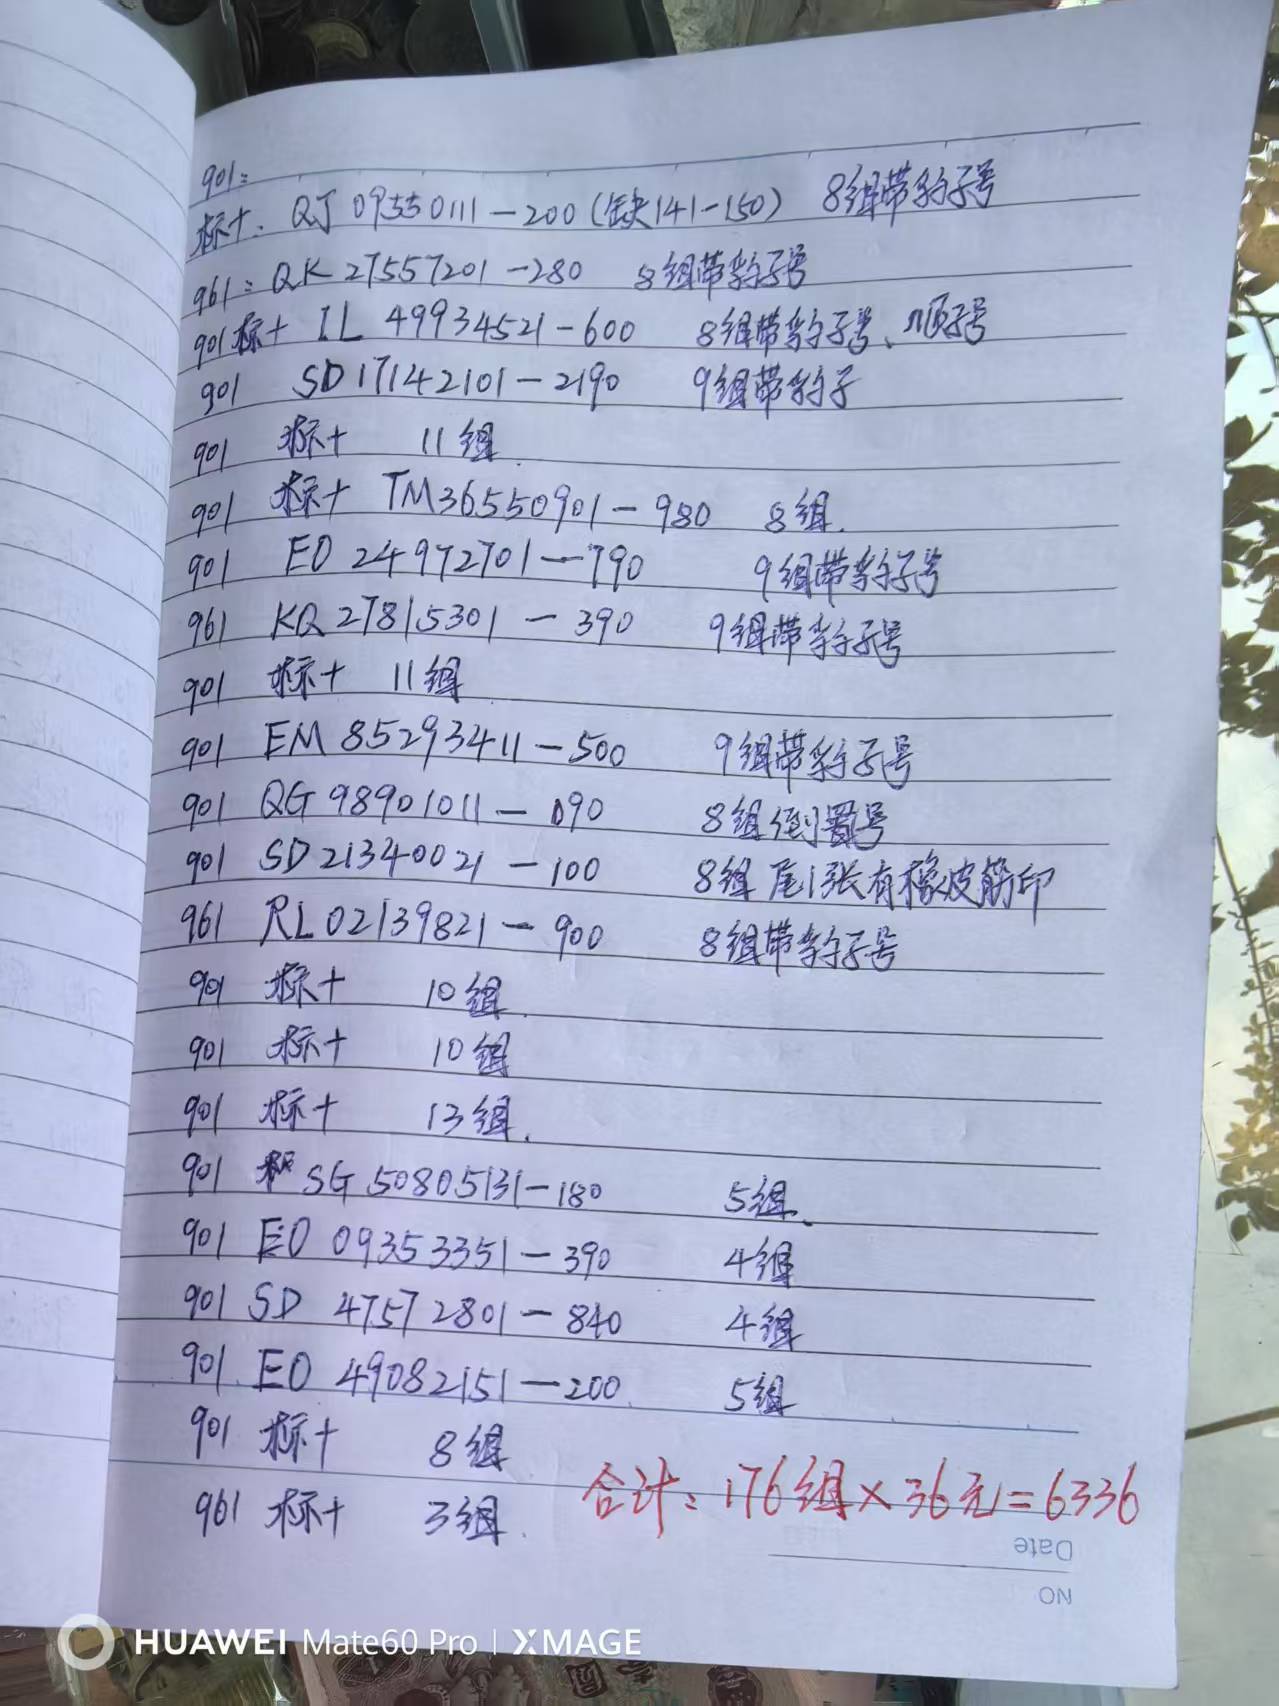 901:
标十. QJ 09550111-200(缺141-150) 8组带豹子号
961: QK 27557201-280 8组带豹子号
901 标十 IL 49934521-600 8组带豹子号、顺子号
901 SD17142101-2190 9组带豹子
901 标十 11组
901 标十 TM36550901-980 8组.
901 EO 24972701-790 9组带豹子号
961 KQ 27815301-390 9组带豹子号
901 标十 11组
901 EM 85293411-500 9组带豹子号
901 QG 98901011-090 8组倒置号
901 SD21340021-100 8组 尾1张有橡皮筋印
961 RL02139821-900 8组带豹子号
901 标十 10组
901 标十 10组
901 标十 13组.
901 SG 50805131-180 5组
901 EO 09353351-390 4组
901 SD 47572801-840 4组
901 EO 49082151-200 5组
901 标十 8组
961 标十 3组
合计: 176组×36元=6336
Date
NO
HUAWEI Mate60 Pro | XMAGE